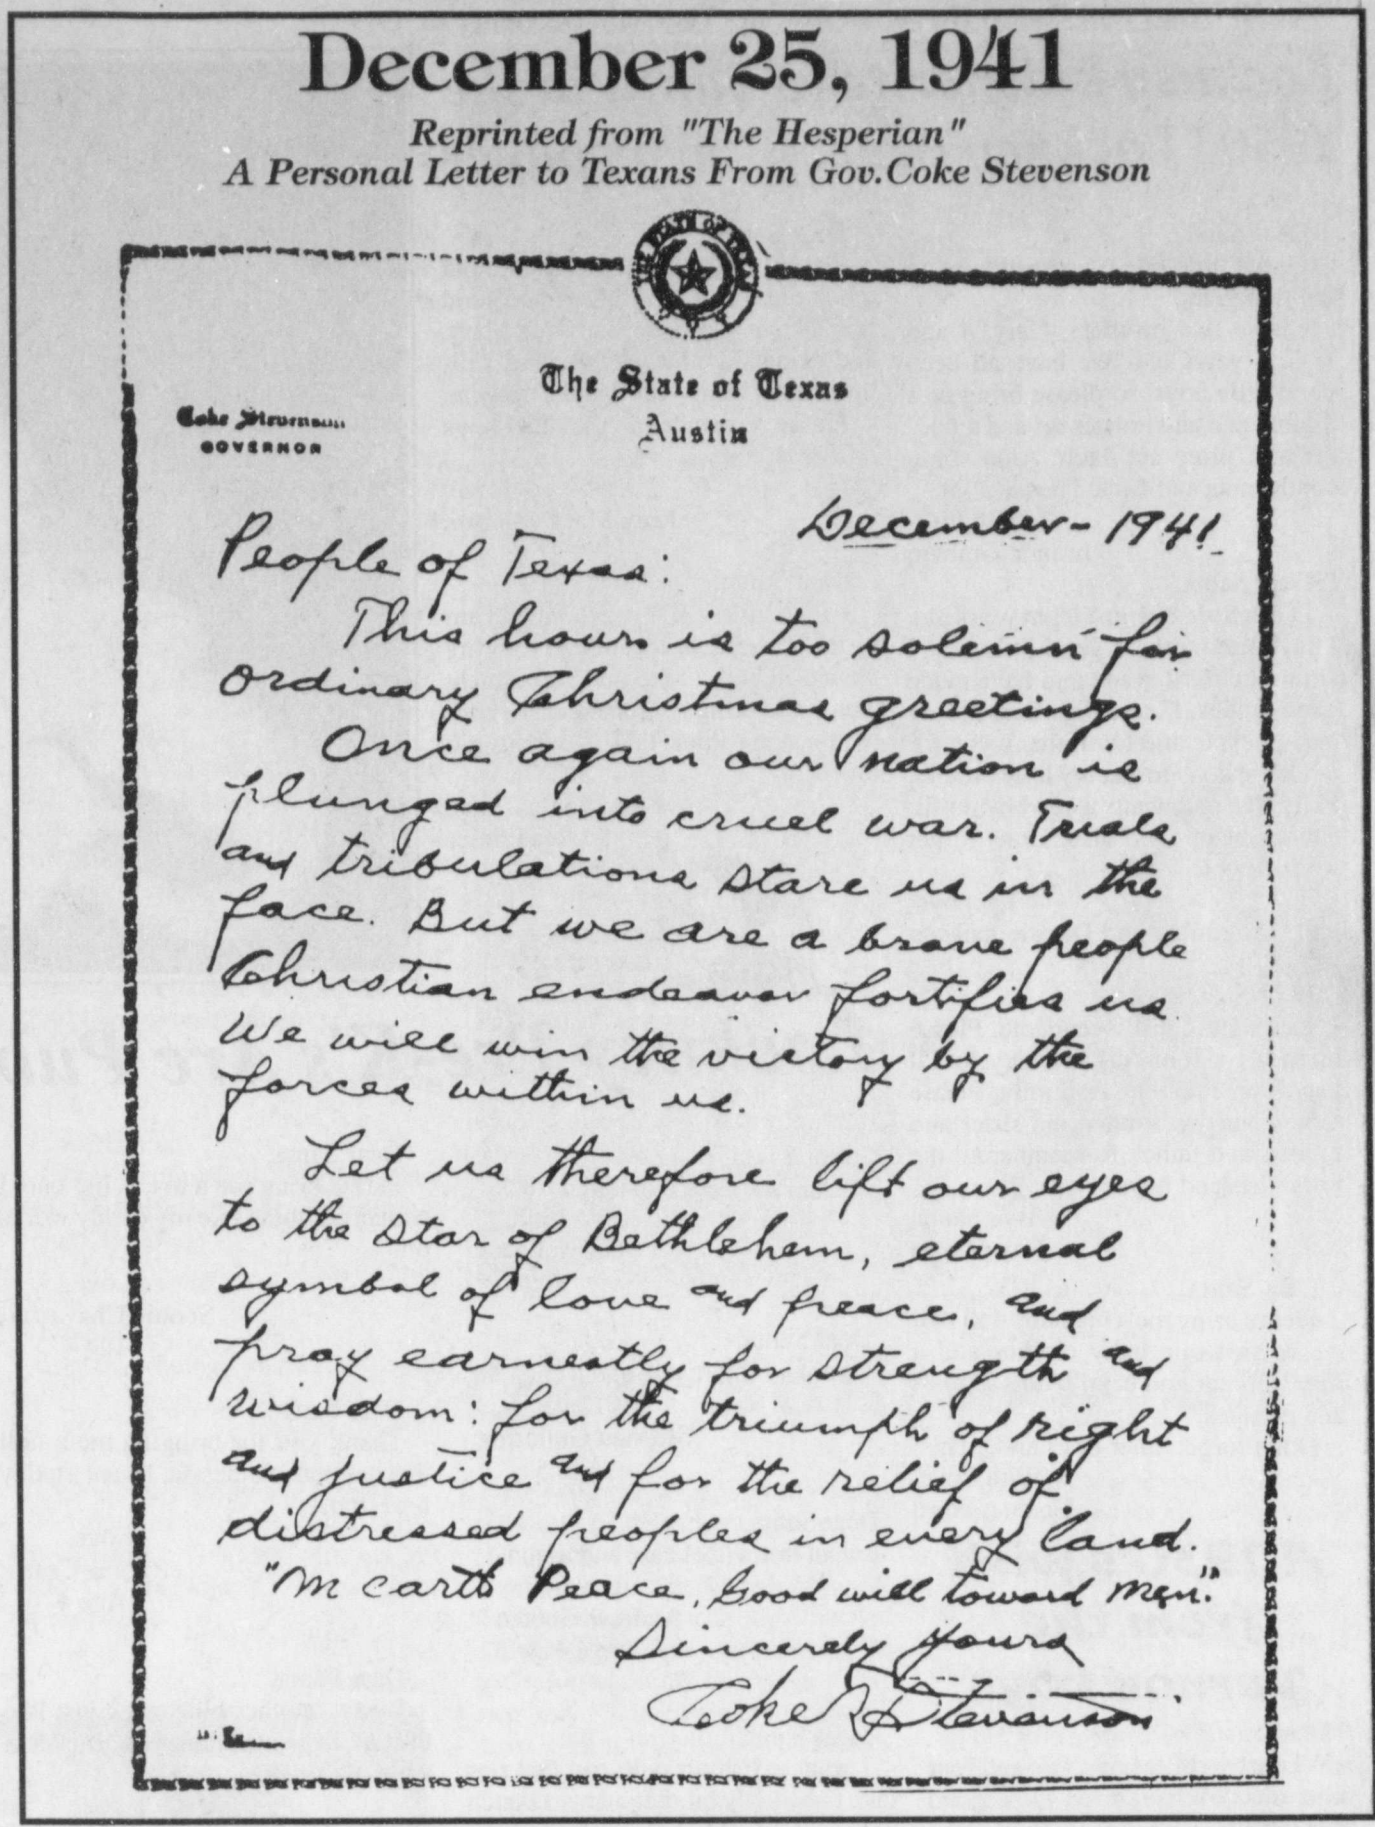 December 25, 1941
Reprinted from "The Hesperian"
A Personal Letter to Texans From Gov. Coke Stevenson
THE STATE OF TEXAS
The State of Texas
Austin
Coke Stevenson
GOVERNOR
December - 1941
People of Texas:
This hour is too solemn for
ordinary Christmas greetings.
Once again our nation is
plunged into cruel war. Trials
and tribulations stare us in the
face. But we are a brave people
Christian endeavor fortifies us
We will win the victory by the
forces within us.
Let us therefore lift our eyes
to the Star of Bethlehem, eternal
symbol of love and peace, and
pray earnestly for strength and
wisdom: for the triumph of right
and justice and for the relief of
distressed peoples in every land.
"On earth Peace, Good will toward Men."
Sincerely yours
Coke R Stevenson